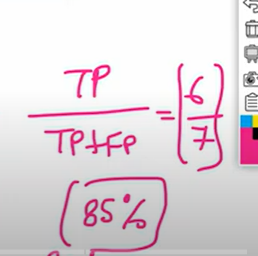 TP
TP+FP
= (6
7)
(85%